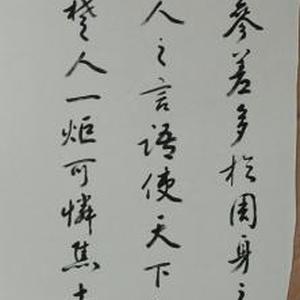 參差多於周身之
人之言語使天下
楚人一炬可憐焦土